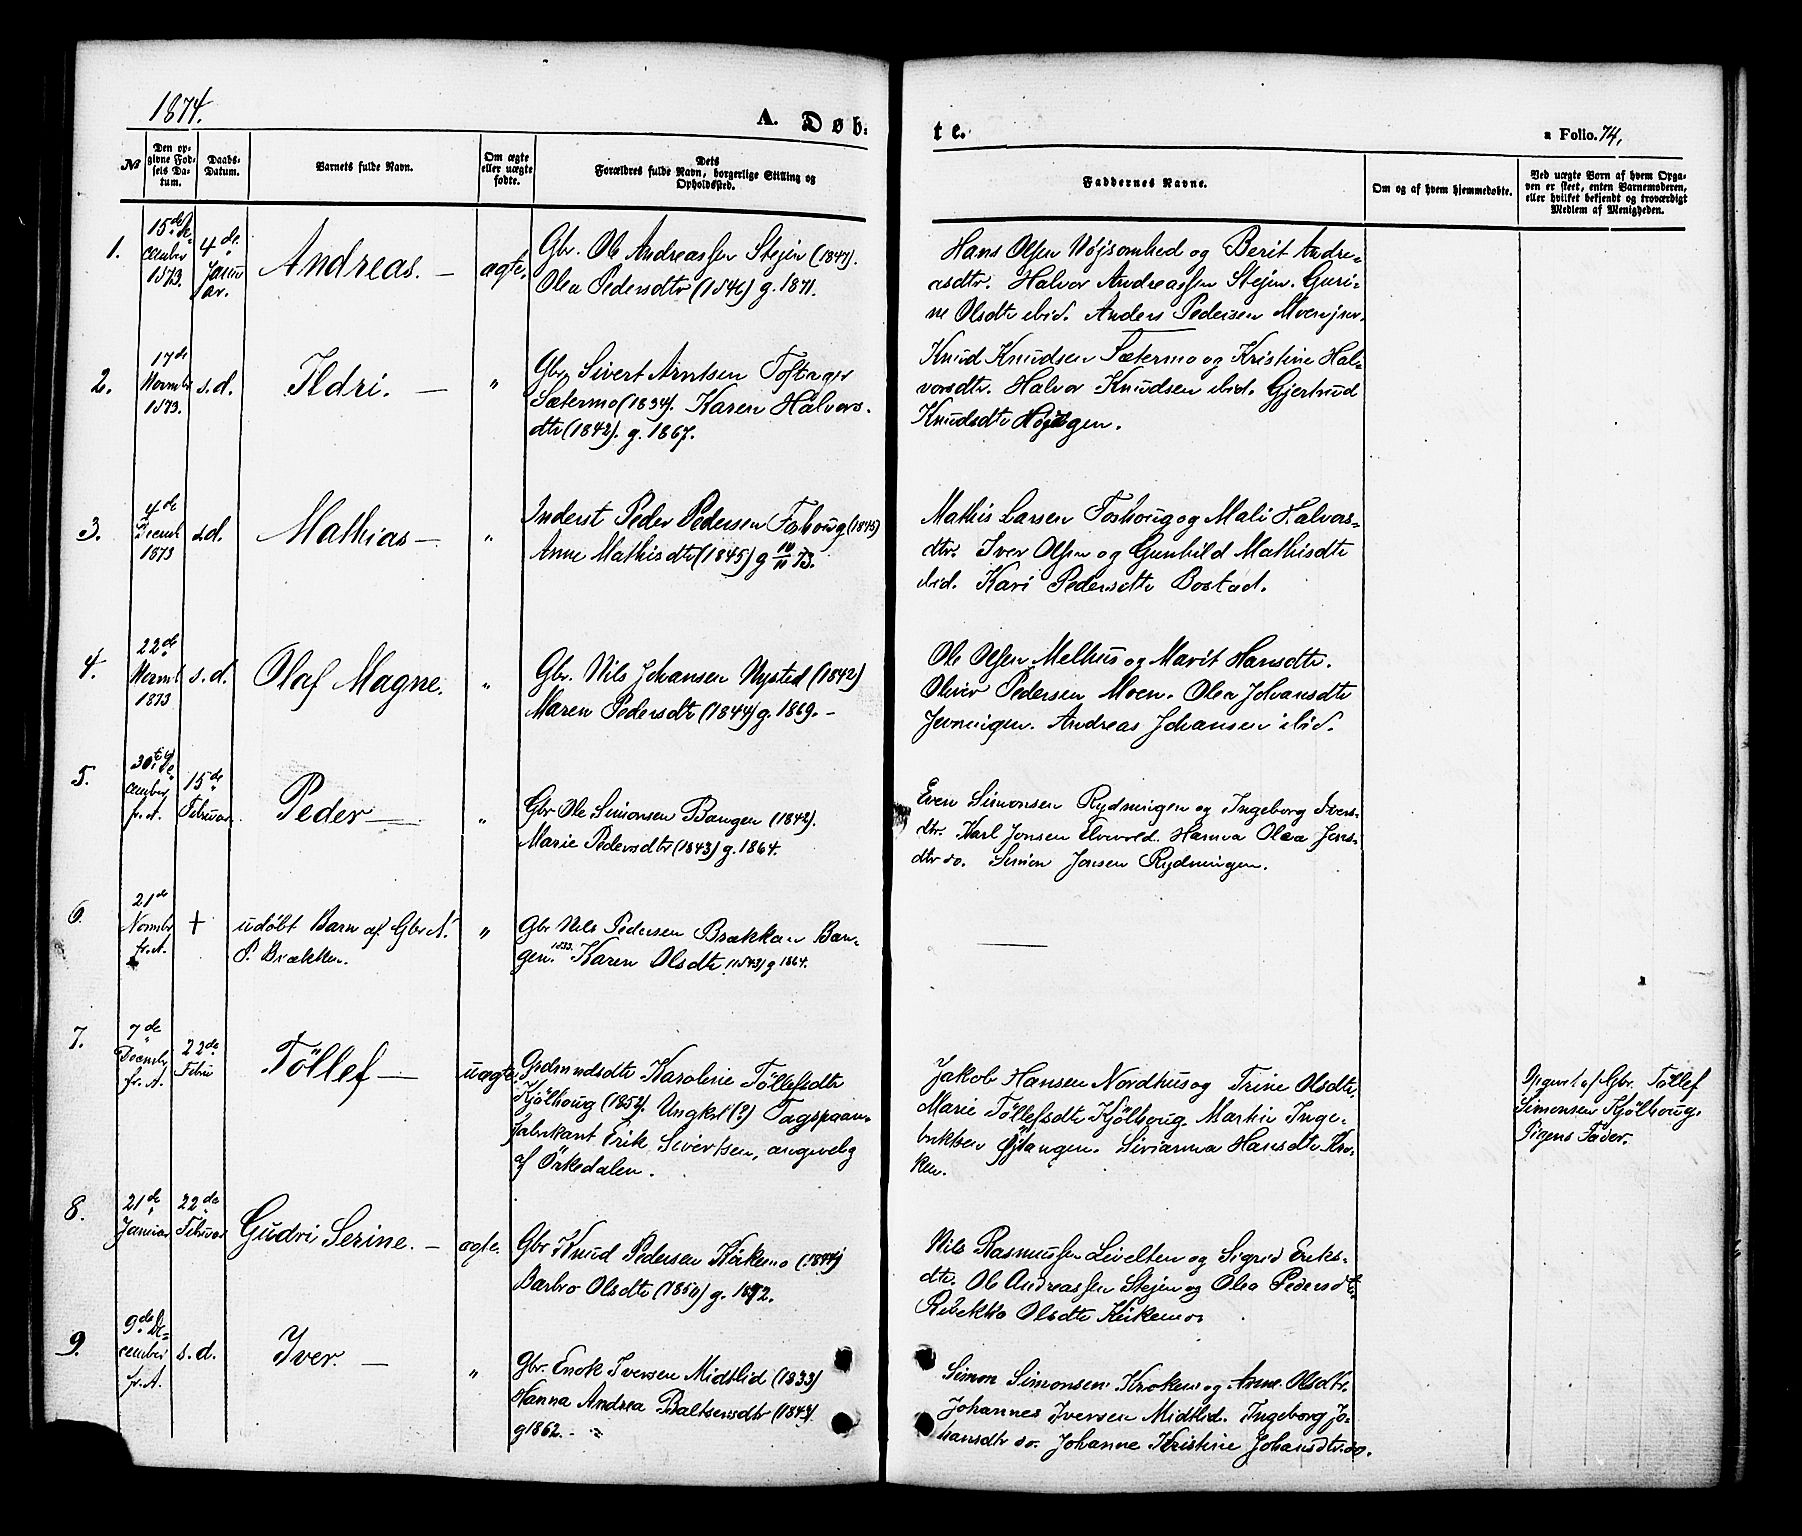 1874.
A. Døb-
te.
a Folio. 74.
№
Den op-
givne Fød-
sels Da-
tum.
Daabs-
Datum.
Barnets fulde Navn.
Om ægte
eller uægte
fødte.
Dets
Forældres fulde Navn, borgerlige Stilling og
Opholdssted.
Faddernes Navne.
Om og af hvem hjemmedøbte.
Ved uægte Børn af hvem Opga-
ven er skeet, enten Barnemoderen,
eller hvilket bekjendt og troværdigt
Medlem af Menigheden.
1.
15de De-
cember
1873.
4de
Janu
ar.
Andreas. —
ægte.
Gbr. Ole Andreassen Stejen (1847).
Olea Pedersdtr (1846) g. 1871.
Hans Olsen Nøjsomhed og Berit Andre-
asdtr. Halvor Andreassen Stejen. Guri-
ne Olsdtr ibid. Anders Pedersen
2.
17de
Novmbr
1873.
s.d.
Ildri. —
"
Gbr. Sivert Arntsen
Sætermo (1834). Karen Halvors-
dtr (1842). g. 1867.
Knud Knudsen Sætermo og Kristine Hal-
vorsdtr. Halvor Knudsen ibid. Gjertrud
Knudsdtr
3.
4de
Decmb
1873
s.d.
Mathias —
"
Inderst Peder Pedersen Foshoug (1845)
Anne Mathisdtr (1845) g 10/11 73.
Mathis Larsen Foshoug og Mali Halvors-
dtr. Iver Olsen og Gunhild Mathisdtr
ibid. Kari Pedersdtr Bostad.
4.
22de
Novmb
1873
s.d.
Olaf Magne.
"
Gbr. Nils Johansen Nysted (1842)
Maren Pedersdtr (1844) g. 1869. —
Ole Olsen Melhus og Marit Hansdtr.
Oliver Pedersen Moen. Olea Johansdtr
Jenningen. Andreas Johansen ibid.
5.
30te De-
cember
fr. A.
15de
Februar
Peder —
"
Gbr Ole Simonsen Bangen (1842).
Marie Pedersdtr (1843) g. 1864.
Even Simonsen Rydningen og Ingeborg Ivers-
dtr. Karl Jonsen Elvevold. Hanna Olea Jens-
dtr do. Simon Jonsen Rydningen.
6.
21de
Novmbr
fr. A.
+
udøbt Barn af Gbr N.
P. Brækken.
"
Gbr Nils Pedersen Brækkan Ban-
gen. 1833. Karen Olsdtr (1843) g 1864.
—
7.
7de
Decmbr
fr. A.
22de
Febru
Töllef —
uægte.
Grdmndsdtr Karoline Töllefsdtr
Kjölhoug (1852). Ungkrl (?) Tagspaan-
fabrikant Erik Sivertsen, angivelig
af Örkedalen.
Jakob Hansen Nordhus og Trine Olsdtr.
Marie Töllefsdtr Kjölhoug. Martin Inge-
briktsen Öjtangen. Sivianna Hansdtr Kro-
ken.
Opgivet af Gbr. Töllef
Simonsen Kjölhoug.
Pigens Fader.
8.
21de
Januar
22de
Februar
Gudri Serine. —
ægte.
Gbr Knud Pedersen Kirkemo (1844)
Barbro Olsdtr (1850) g. 1872.
Nils Rasmussen Livelten og Sigrid Eriks-
dtr. Ole Andreassen Stejen og Olea Pedersdtr.
Rebekka Olsdtr Kirkemo
9.
9de De-
cember
fr. A.
s.d.
Iver. —
"
Gbr. Enok Iversen Midtlid (1833)
Hanna Andrea Baltsersdtr (1843)
g 1862. —
Simon Simonsen Kroken og Anne Olsdtr.
Johannes Iversen Midtlid. Ingeborg Jo-
hansdtr do. Johanne Kristine Johansdtr do.